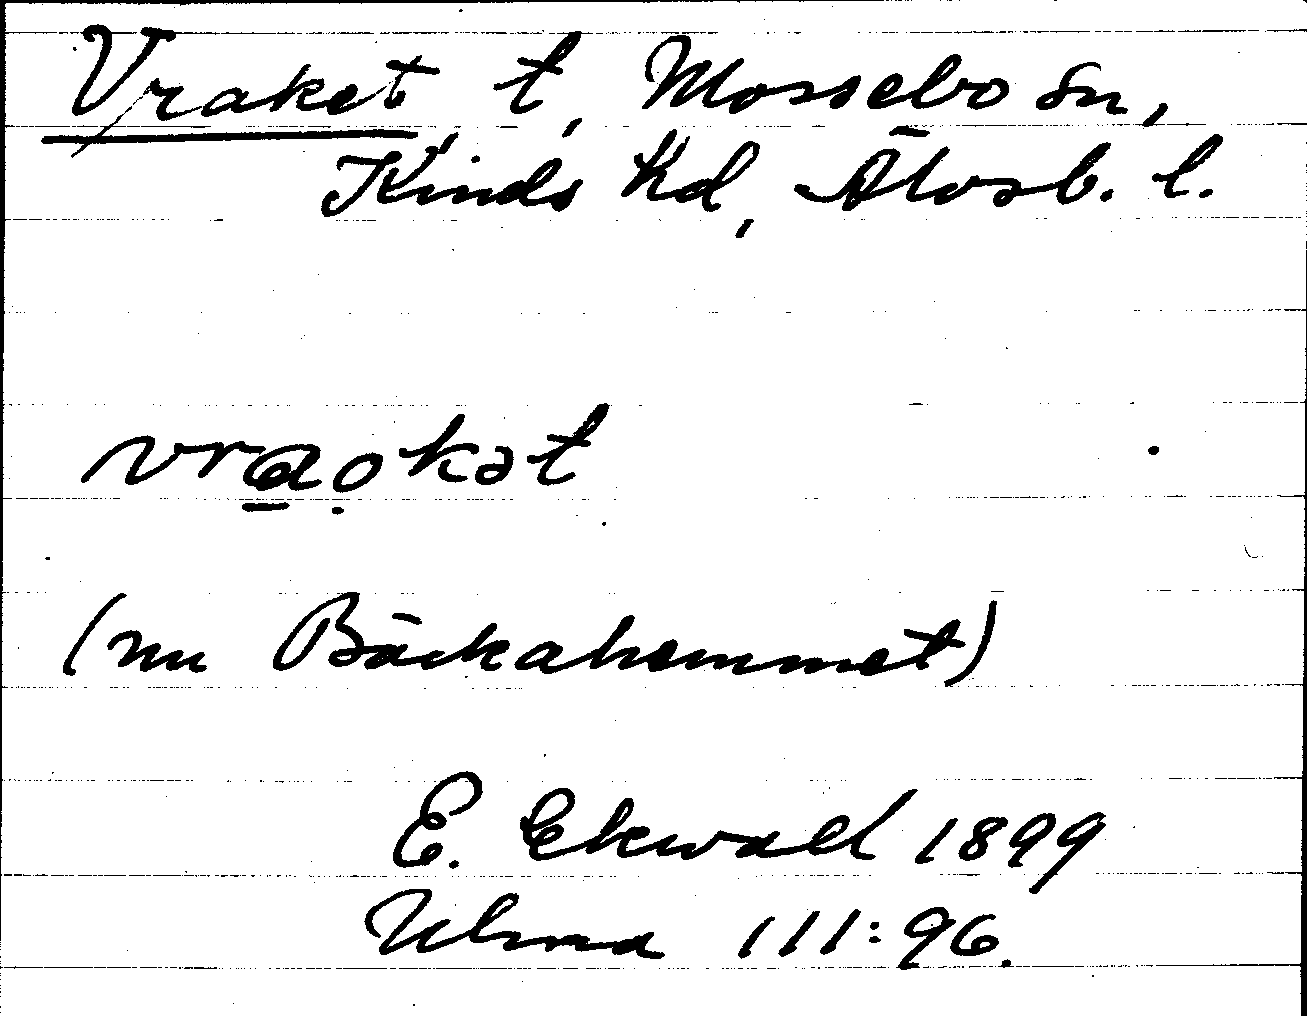 Vraket, t, Mossebo sn,
Kinds hd, Älvsb. l.
vra̲ọkət
(nu Bäckahemmet)
E. Ekwall 1899
Ulma 111:96.